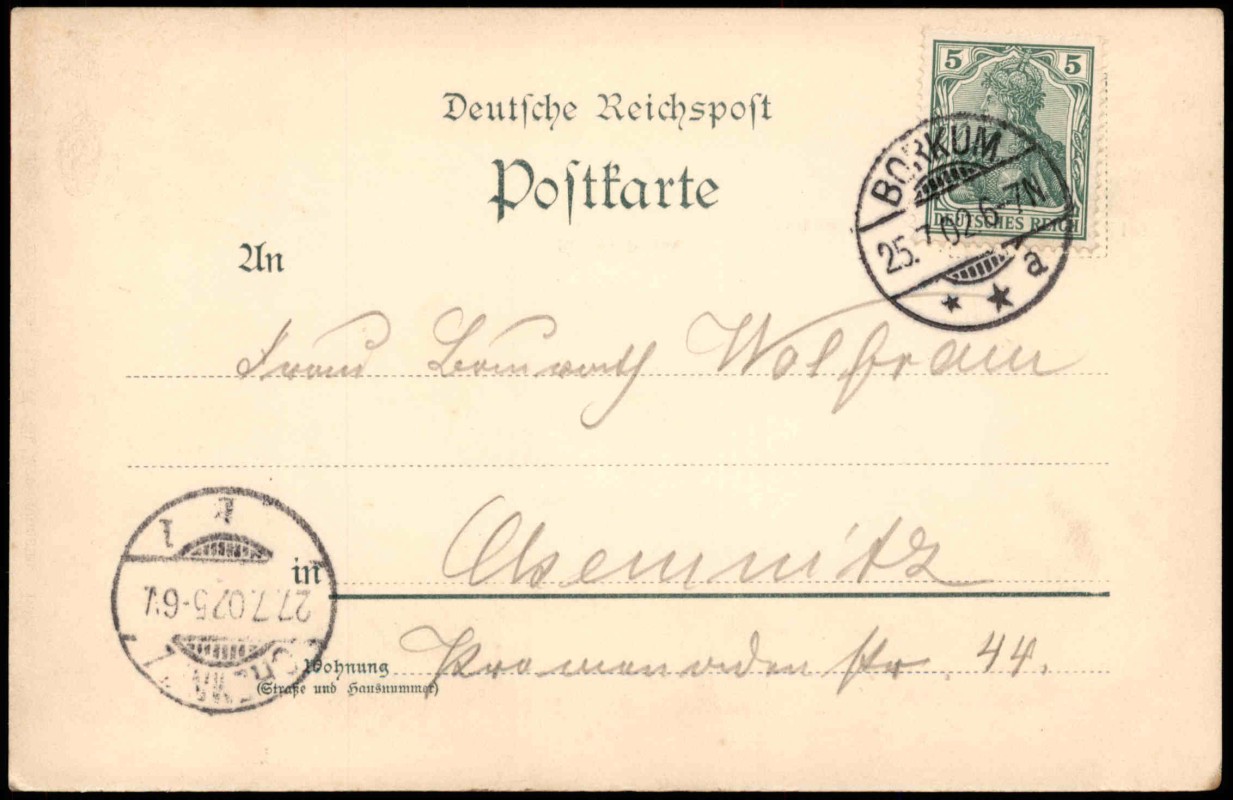 5 5
DEUTSCHES REICH
BORKUM
25.7.02 6-7N
a
Deutsche Reichspost
Postkarte
An
Frau Baurath Wolfram
in Chemnitz
Wohnung
(Straße und Hausnummer)
Promenaden str. 44.
CHEMNITZ
27.7.02 5-6V.
1